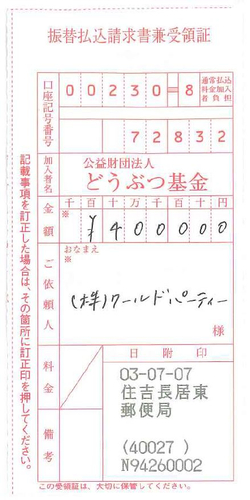 振替払込請求書兼受領証
口座記号番号
00230=8
通常払込
料金加入
者負担
72832
加入者名
公益財団法人
どうぶつ基金
金額
千百十万千百十円
※
¥400000
ご依頼人
おなまえ
※
(株)ワールドパーティー
様
料金
備考
日附印
03-07-07
住吉長居東
郵便局
(40027 )
N94260002
記載事項を訂正した場合は、その箇所に訂正印を押してください。
この受領証は、大切に保管してください。